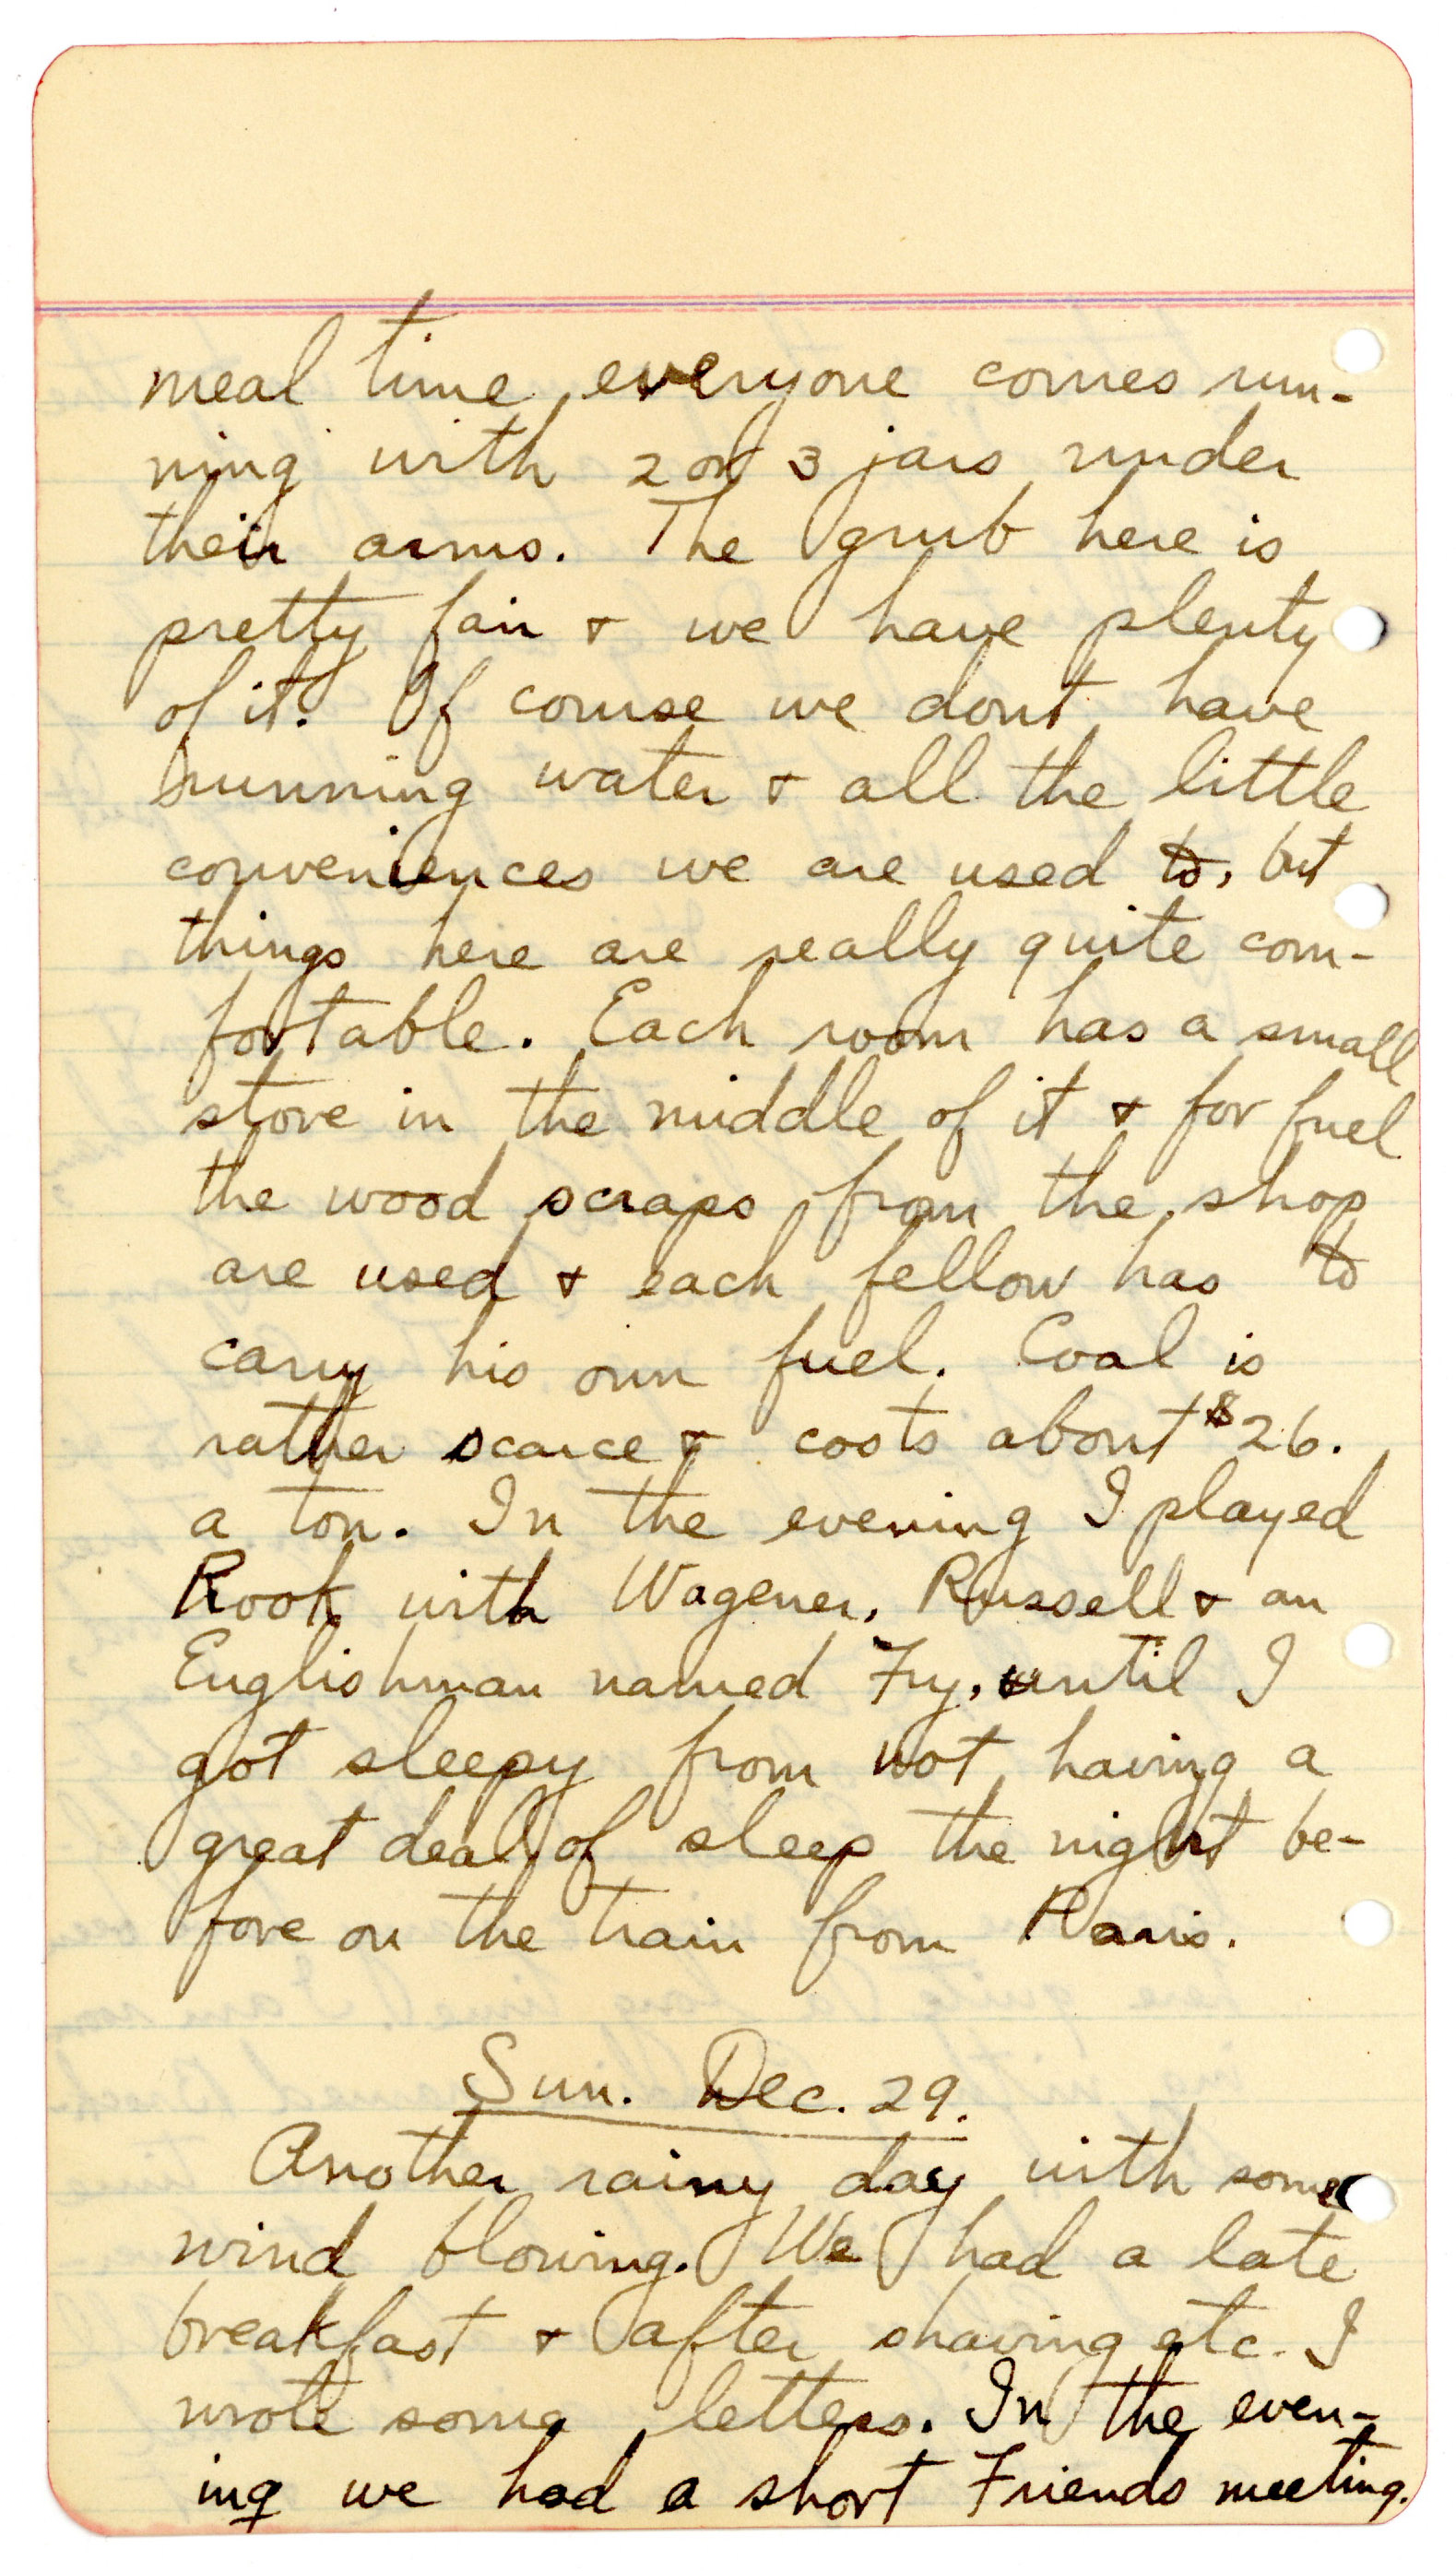 meal time everyone comes run-
ning with 2 or 3 jars under
their arms. The grub here is
pretty fair & we have plenty
of it. Of course we dont have
running water & all the little
conveniences we are used to, but
things here are really quite com-
fortable. Each room has a small
stove in the middle of it & for fuel
the wood scraps from the shop
are used & each fellow has to
carry his own fuel. Coal is
rather scarce & costs about $26.
a ton. In the evening I played
Rook with Wagener, Russell & an
Englishman named Fry, until I
got sleepy from not having a
great deal of sleep the night be-
fore on the train from Paris.
Sun. Dec. 29.
Another rainy day with some
wind blowing. We had a late
breakfast & after shaving etc. I
wrote some letters. In the even-
ing we had a short Friends meeting.